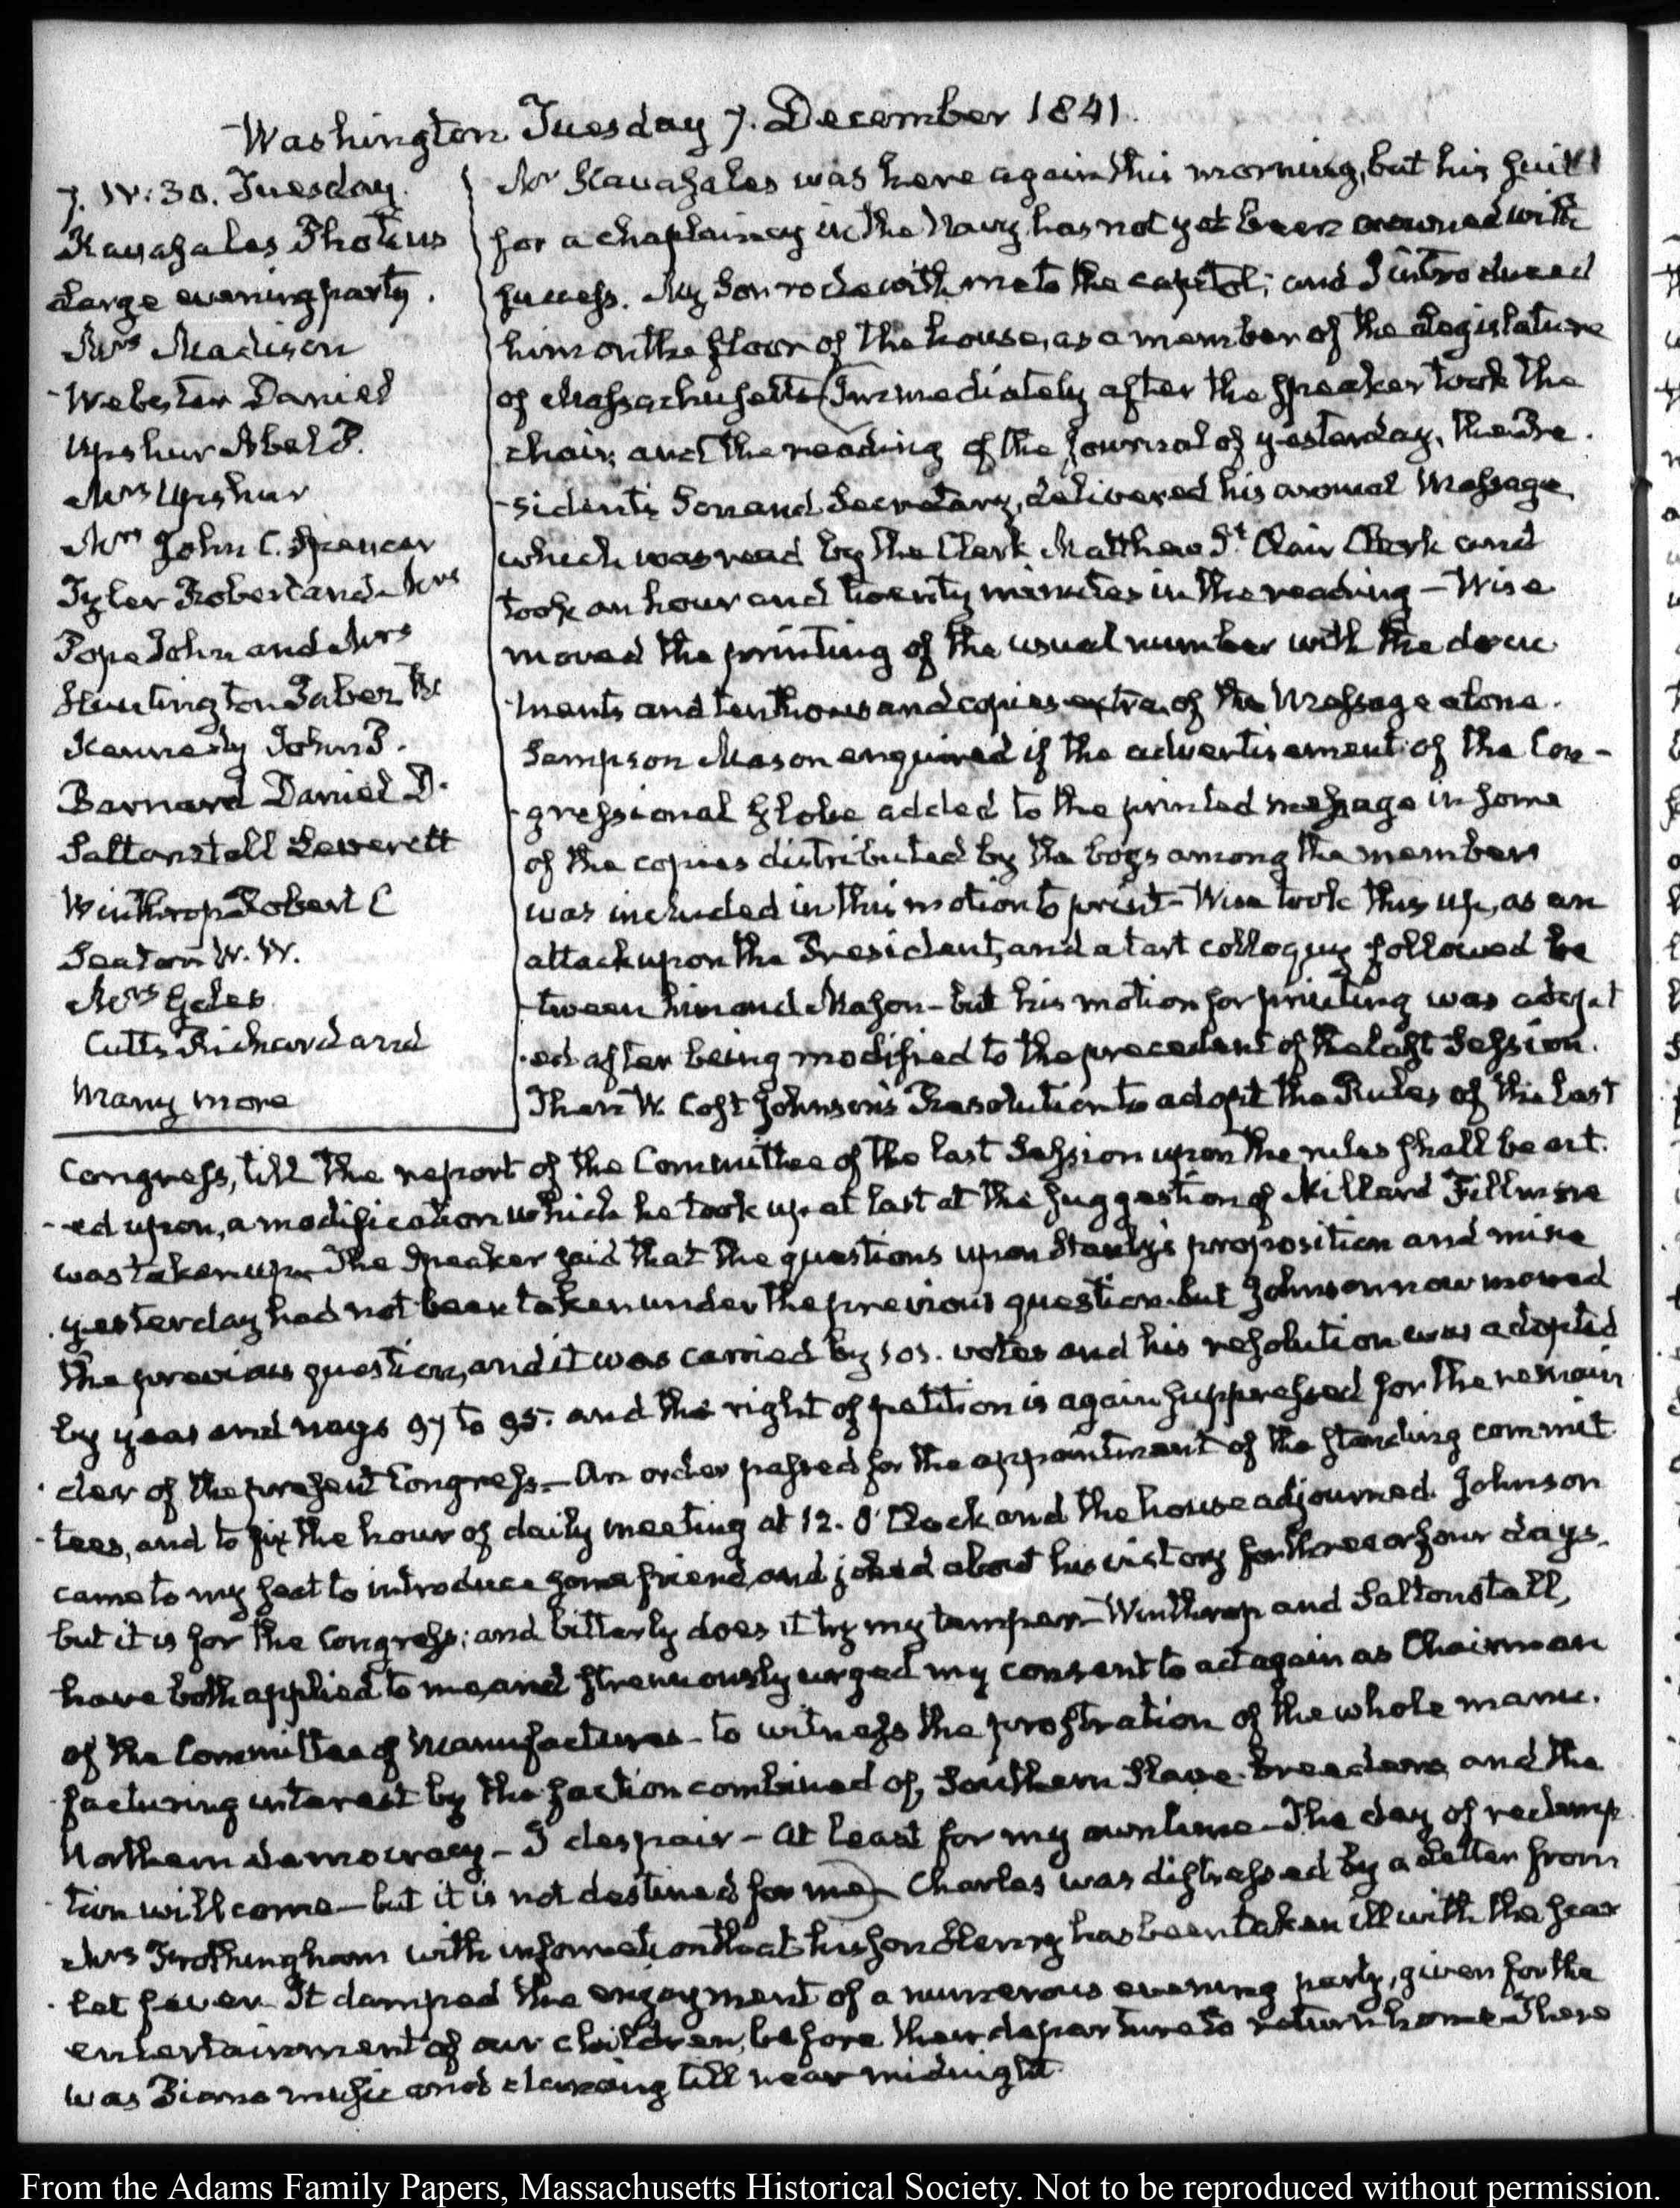 Washington Tuesday 7. December 1841.
7. IV:30. Tuesday.
Kavasales Photius
Large evening party.
Mrs Madison
Webster Daniel
Upshur Abel P.
Mrs Upshur
Mrs John C. Spencer
Tyler Robert and Mrs
Pope John and Mrs
Huntington Jabez W
Kennedy John P.
Barnard Daniel D.
Saltonstall Leverett
Winthrop Robert C
Seaton W. W.
Mrs Gales
Cutts Richard and
many more
Mr Kavasales was here again this morning, but his suit
for a chaplaincy in the Navy has not yet been crowned with
success. My Son rode with me to the capitol; and I introduced
him on the floor of the house, as a member of the Legislature
of Massachusetts (Immediately after the Speaker took the
chair, and the reading of the Journal of yesterday, the Pre-
-sident's Son and Secretary, delivered his annual Message
which was read by the Clerk Matthew St Clair Clark and
took an hour and twenty minutes in the reading — Wise
moved the printing of the usual number with the docu
-ments and ten thousand copies extra of the Message alone.
Sampson Mason enquired if the advertisement of the Con-
-gressional Globe added to the printed message in some
of the copies distributed by the boys among the members
was included in this motion to print — Wise took this up, as an
attack upon the President, and a tart colloquy followed be
-tween him and Mason — but his motion for printing was adopt
-ed after being modified to the precedent of the last Session.
Then W. Cost Johnson's Resolution to adopt the Rules of the last
Congress, till the report of the Committee of the last Session upon the rules shall be act.
-ed upon, a modification which he took up at last at the suggestion of Millard Fillmore
was taken up. The Speaker said that the questions upon Stanly's proposition and mine
yesterday had not been taken under the previous question but Johnson now moved
the previous question, and it was carried by 101. votes and his resolution was adopted
by yeas and nays 97 to 95. and the right of petition is again suppressed for the remain
-der of the present Congress — An order passed for the appointment of the standing commit
-tees, and to fix the hour of daily meeting at 12. O'Clock and the house adjourned. Johnson
came to my seat to introduce some friend, and joked about his victory for three or four days.
but it is for the Congress; and bitterly does it try my temper — Winthrop and Saltonstall,
have both applied to me, and strenuously urged my consent to act again as Chairman
of the Committee of Manufactures — to witness the prostration of the whole manu.
-facturing interest by the faction combined of, Southern Slave-breeders, and the
Northern democracy — I despair — at least for my own time — The day of redemp
-tion will come — but it is not destined for me) — Charles was distressed by a Letter from
Mrs Frothingham with information that his son Henry has been taken ill with the scar
-let fever. It damped the enjoyment of a numerous evening party, given for the
entertainment of our children, before their departure to return home — There
was Piano music and dancing till near midnight
From the Adams Family Papers, Massachusetts Historical Society. Not to be reproduced without permission.